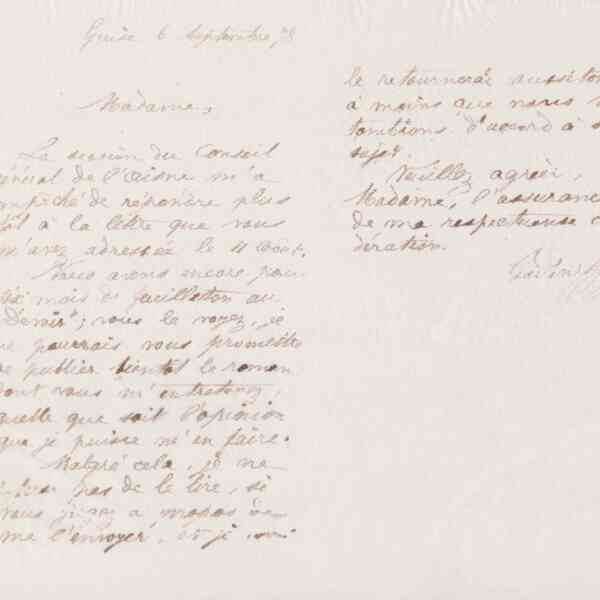 Guise 6 Septembre, 78
Madame,
La session du Conseil
énéral de l'Aisne m'a
mpêché de répondre plus
tôt à la lettre que vous
m'avez adressée le 11 août.
Nous avons encore pour
six mois de feuilleton au
"Devoir"; vous le voyez, je
ne pourrais vous promettre
de publier bientôt le roman
dont vous m'entretenez,
quelle que soit l'opinion
que je puisse m'en faire.
Malgré cela, je ne
pas de le lire, si
vous jugez à propos de
me l'envoyer, et je
le retournerai aussitô
à moins que nous n
tombions d'accord à s
sujet.
Veuillez agréer,
Madame, l'assurance
de ma respectueuse c
dération.
Godin